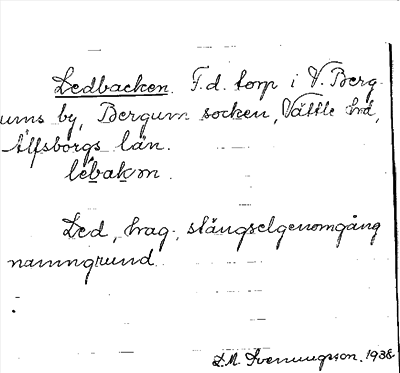 Ledbacken. F.d. torp i V. Berg-
ums by, Bergum socken, Vättle hd,
Älfsborgs län.
lébakɐn.
Led, hag, stängselgenomgång
namngrund.
D.M. Svenungsson. 1938